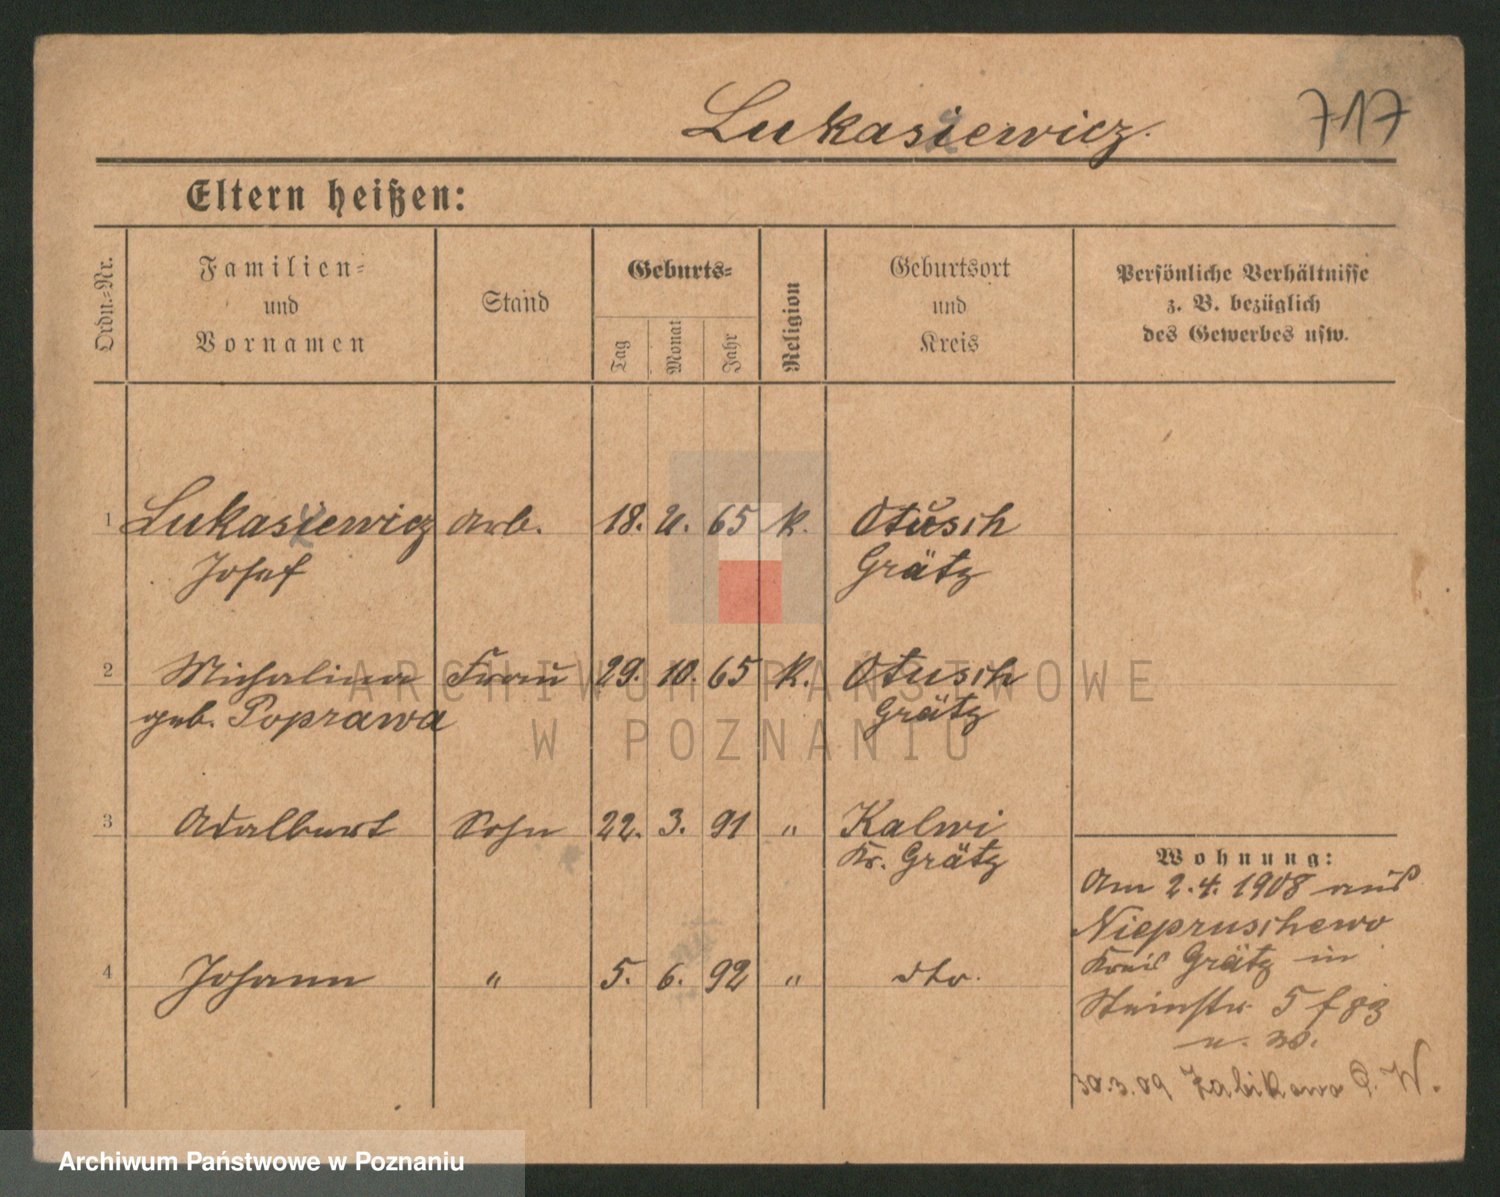 Lukasiewicz. 717
Eltern heißen:
Ordn.-Nr.
Familien-
und
Vornamen
Stand
Geburts-
Tag
Monat
Jahr
Religion
Geburtsort
und
Kreis
Persönliche Verhältnisse
z. B. bezüglich
des Gewerbes usw.
1 Lukasiewicz Arb. 18. 2. 65 k. Otusch
Josef Grätz
2 Michalina Frau 29. 10. 65 k. Otusch
geb. Poprawa Grätz
3 Adalbert Sohn 22. 3. 91 " Kalwi
Kr. Grätz
4 Johann " 5. 6. 92 " dto.
Wohnung:
Am 2.4.1908 aus
Niepruschewo
Kreis Grätz in
Steinstr. 5
30.3.09 Zabikowo P. W.
ARCHIWUM PAŃSTWOWE
W POZNANIU
Archiwum Państwowe w Poznaniu